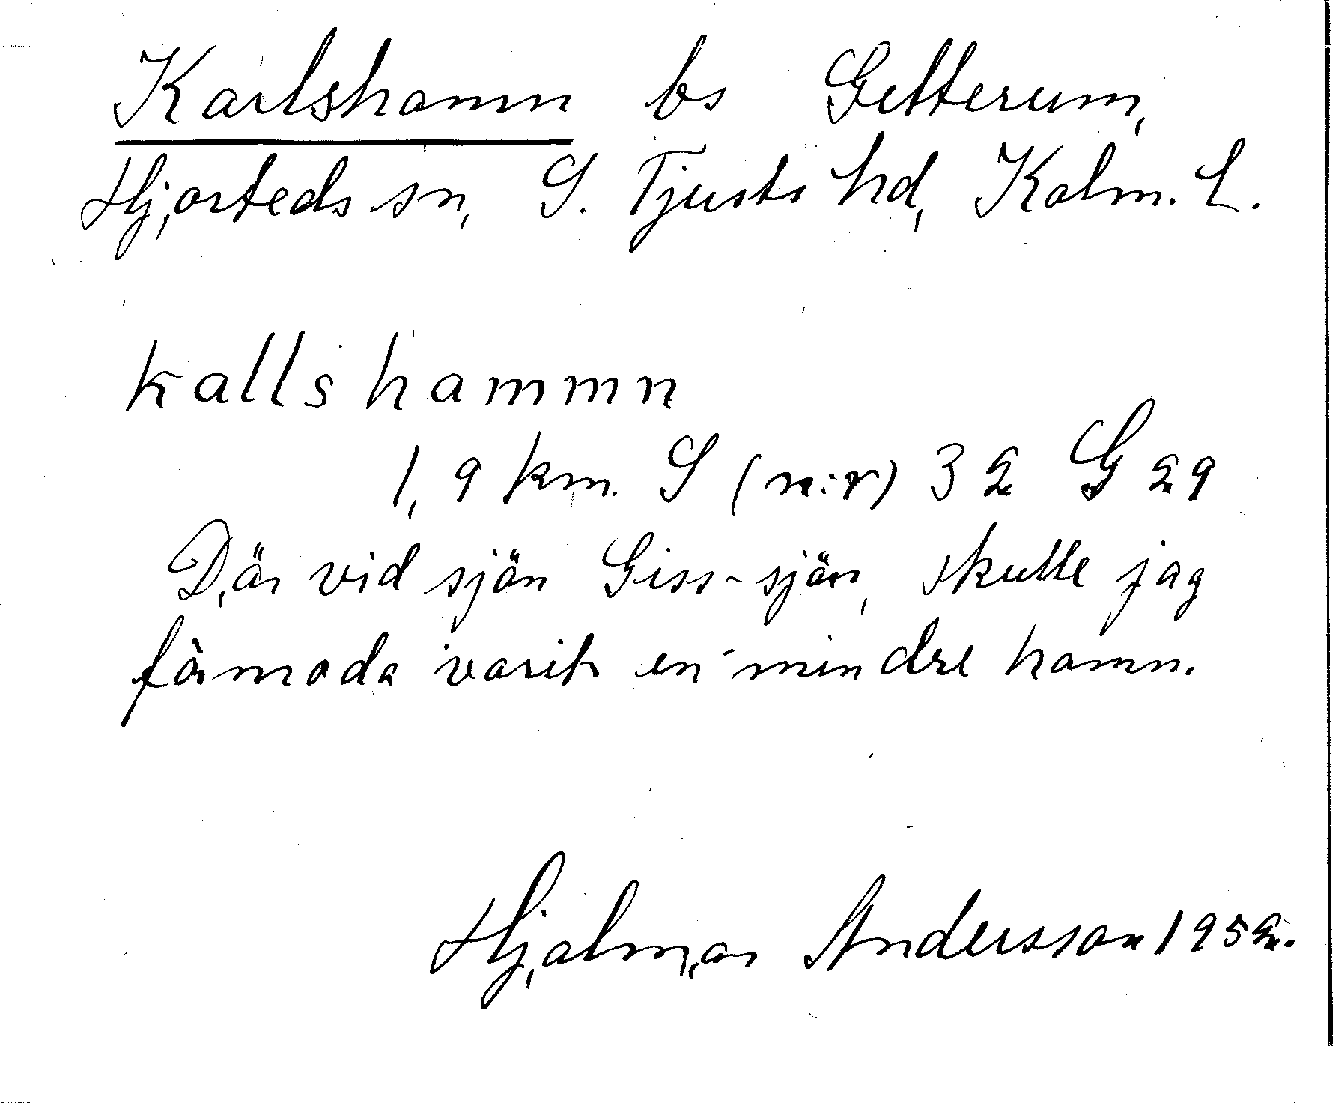 Karlshamn bs Getterum,
Hjorteds sn, S. Tjusts hd, Kalm. L.
kallshammn
1,9 km. S (n:r) 32 G 29
Där vid sjön Giss-sjön, skulle jag
förmoda varit en mindre hamn.
Hjalmar Andersson 1952.